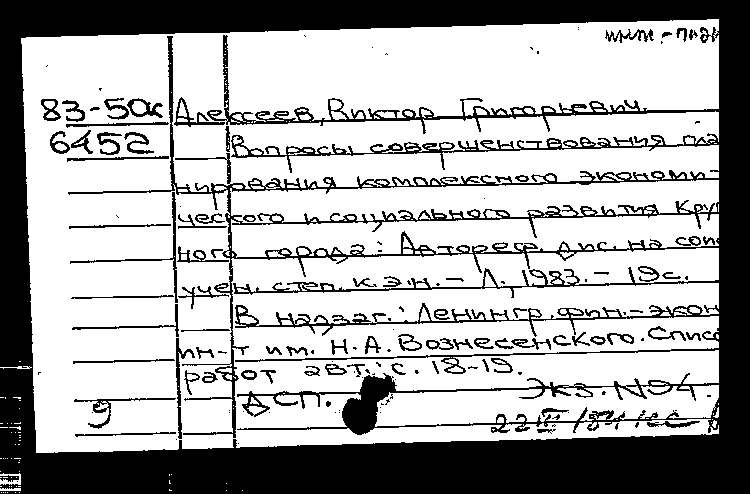 83-50к Алексеев, Виктор Григорьевич.
6452 Вопросы совершенствования пла
нирования комплексного экономи-
ческого и социального развития круп
ного города: Автореф. дис. на соис
учен. степ. к.э.н. - Л., 1983. - 19с.
В надзаг.: Ленингр. фин.-экон
ин-т им. Н.А. Вознесенского. Списо
работ авт.: с. 18-19.
9 ДСП. Экз. N94.
22 III /84